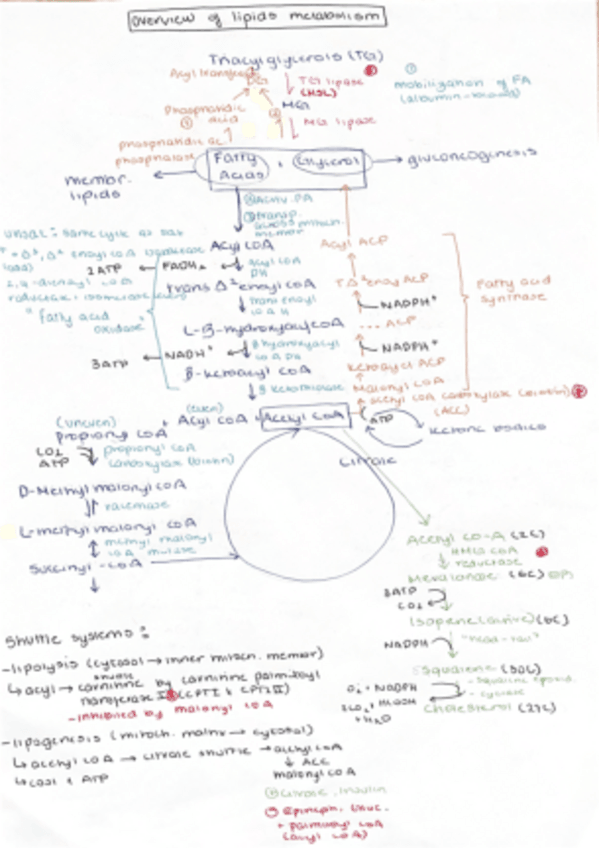 overview of lipids metabolism
Triacylglycerols (TG)
Acyl transferase
DG
TG lipase
(HSL)
①
mobilization of FA
(albumin-bound)
Phosphatidic
acid
MG
MG lipase
phosphatidic ac.
phosphatase
Fatty
Acids
+
Glycerol
gluconeogenesis
membr.
lipids
② Activ. FA
③ transp.
across mitoch.
membr
unsat: same cycle as sat
Acyl CoA
Acyl ACP
2ATP
FADH₂
acyl CoA
DH
trans Δ²enoyl CoA
TΔ²enoy ACP
reductase + isomerase
"fatty acid
oxidase"
trans enoyl
CoA H
NADPH⁺
Fatty acid
synthase
L-β-hydroxyacyl CoA
... ACP
3ATP
NADH⁺
β hydroxyacyl
CoA DH
NADPH⁺
β-ketoacyl CoA
Ketoacyl ACP
β ketothiolase
Malonyl CoA
acetyl CoA carboxylase (biotin)
(ACC)
(uneven)
(even)
propionyl CoA
+ Acyl CoA +
Acetyl CoA
ATP
Ketone bodies
CO₂
ATP
propionyl CoA
carboxylase (biotin)
Citrate
D-Methyl malonyl CoA
racemase
L-methyl malonyl CoA
methyl malonyl
CoA mutase
Succinyl-CoA
Acetyl CO-A (2C)
HMG CoA
reductase
Mevalonate (6C)
3ATP
CO₂
Isoprene (5C)
NADPH
"head-tail"
Squalene (30C)
O₂ + NADPH
- squalene epoxid.
- cyclase
+ H₂O
Cholesterol (27C)
Shuttle systems:
-lipolysis (cytosol → inner mitoch. membr)
shuttle
↳ acyl → carnitine by carnitine palmitoyl
transferase I (CPTI & CPTII)
-inhibited by malonyl CoA
-lipogenesis (mitoch. matrix → cytosol)
↳ acetyl CoA → citrate shuttle → acetyl CoA
↓ ACC
malonyl CoA
↳ cost 1 ATP
⊕ Citrate, insulin
⊖ Epineph., Gluc.
+ palmitoyl CoA
(acyl CoA)